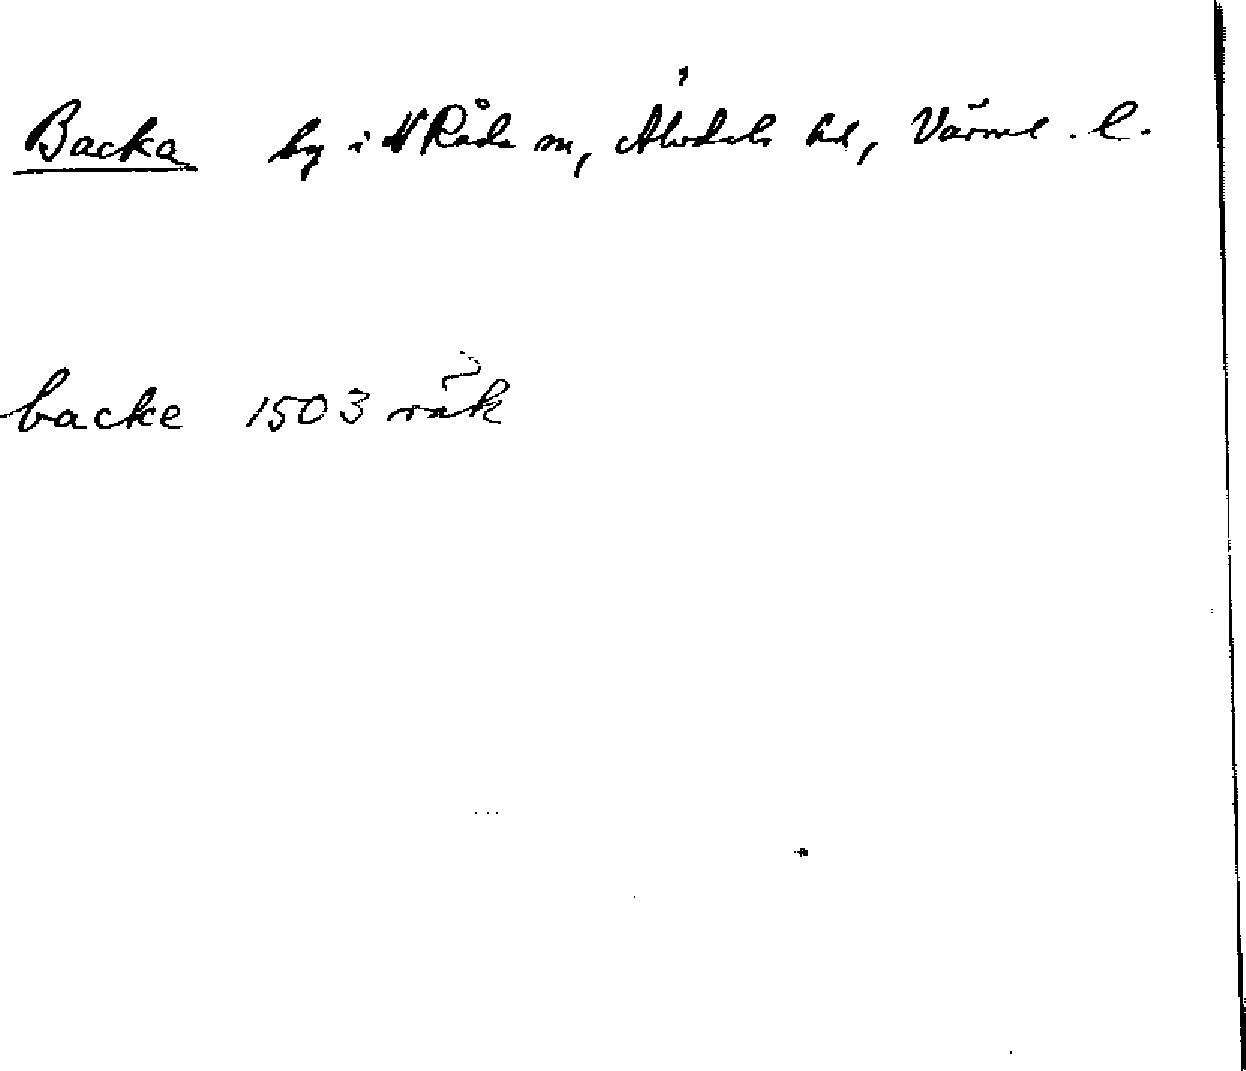 Backa by i N Råda sn, Älvdals hd, Värml. l.
backe 1503 räk